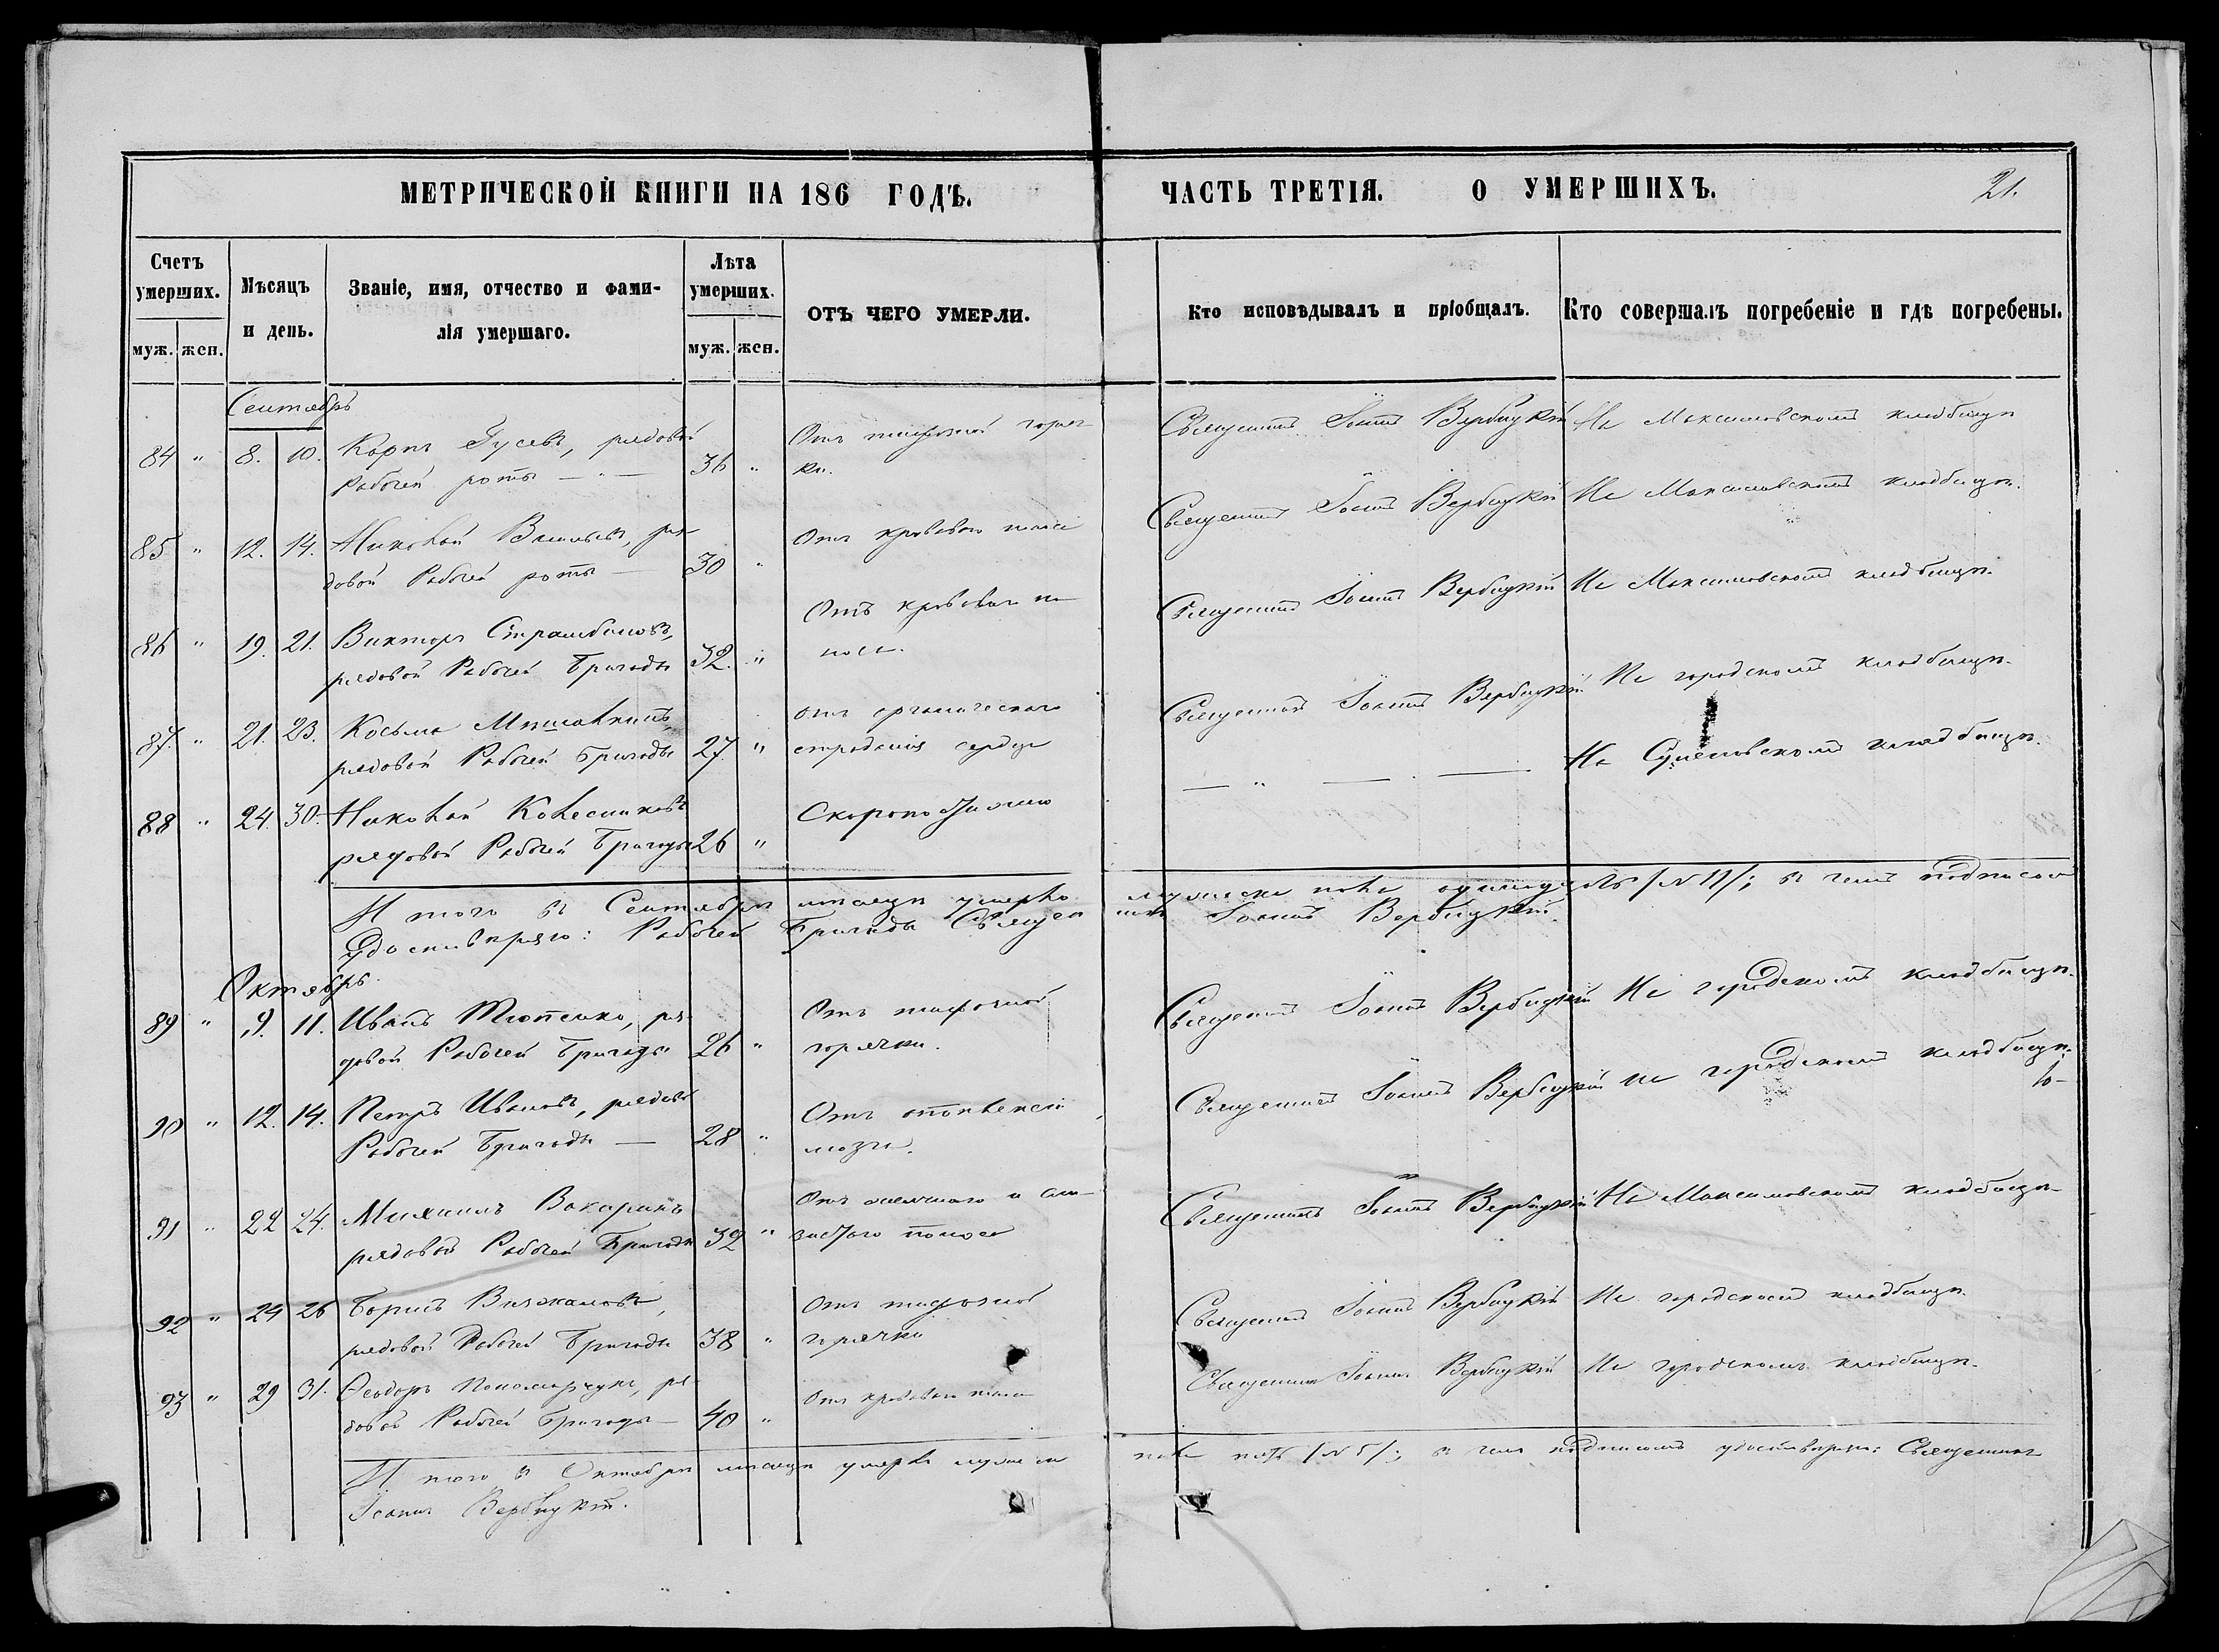 МЕТРИЧЕСКОЙ КНИГИ НА 186 ГОДЪ.
ЧАСТЬ ТРЕТІЯ. О УМЕРШИХЪ. 21.
Счетъ умерших.
муж. жен.
Мѣсяцъ и день.
Званіе, имя, отчество и фами-
лія умершаго.
Лѣта умерших.
муж. жен.
ОТЪ ЧЕГО УМЕРЛИ.
Кто исповѣдывалъ и пріобщалъ.
Кто совершалъ погребеніе и гдѣ погребены.
Сентябрь
84 " 8. 10. Карпъ Гусевъ, рядовой
рабочей роты — " — 36 "
Отъ тифозной горяч
ки.
Священникъ Іоаннъ Вербицкій На Максимовскомъ кладбищѣ
85 " 12. 14. Николай Васильевъ, ря-
довой Рабочей роты — 30 "
Отъ кроваваго поноса
Священникъ Іоаннъ Вербицкій На Максимовскомъ кладбищѣ.
86 " 19. 21. Викторъ
рядовой Рабочей Бригады 32. "
Отъ кроваваго по
носа.
Священникъ Іоаннъ Вербицкій На Максимовскомъ кладбищѣ.
87. " 21. 23. Косьма
рядовой Рабочей Бригады 27. "
отъ органическаго
страданія сердца
Священникъ Іоаннъ Вербицкій На городскомъ кладбищѣ.
88 " 24. 30. Николай Колесниковъ
рядовой Рабочей Бригады 26 "
Скоропостижно
— " — — На кладбищѣ.
И того въ Сентябрѣ мѣсяцѣ умерло мужеска пола одинадцать /№ 11/; въ чемъ подписом
удостовѣряю: Рабочей Бригады Священ никъ Іоаннъ Вербицкій.
Октябрь.
89 " 9. 11. Иванъ ря-
довой Рабочей Бригады 26 "
Отъ тифозной
горячки.
Священникъ Іоаннъ Вербицкій На городскомъ кладбищѣ.
90 " 12. 14. Петръ Ивановъ, рядовой
Рабочей Бригады — 28 "
Отъ
мозга.
Священникъ Іоаннъ Вербицкій на городскомъ кладбищѣ.
91 " 22 24. Михаилъ
рядовой Рабочей Бригады 32 "
Отъ и сли-
зистаго поноса
Священникъ Іоаннъ Вербицкій На Максимовскомъ кладбищѣ
92 " 24 26 Борисъ
рядовой Рабочей Бригады 38 "
Отъ тифозной
горячки
Священникъ Іоаннъ Вербицкій На городскомъ кладбищѣ.
93 " 29 31. Ѳеодоръ Пономарчукъ, ря-
довой Рабочей Бригады — 40 "
Отъ кроваваго поноса
Священникъ Іоаннъ Вербицкій На городскомъ кладбищѣ.
И того въ Октябрѣ мѣсяцѣ умерло мужеска пола пять /№ 5/; въ чемъ подписомъ удостовѣряю: Священникъ
Іоаннъ Вербицкій.